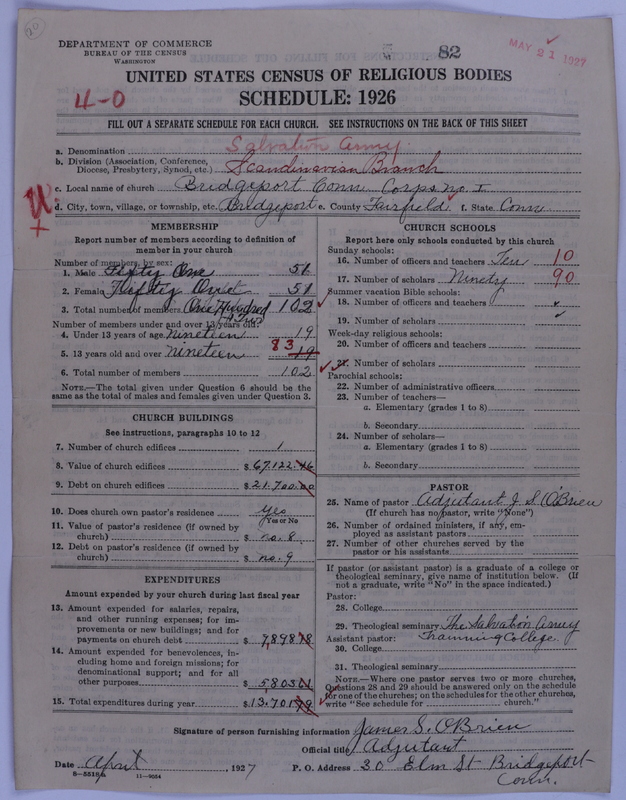 DEPARTMENT OF COMMERCE
BUREAU OF THE CENSUS
WASHINGTON
82
MAY 21 1927
UNITED STATES CENSUS OF RELIGIOUS BODIES
4-0
SCHEDULE: 1926
FILL OUT A SEPARATE SCHEDULE FOR EACH CHURCH. SEE INSTRUCTIONS ON THE BACK OF THIS SHEET
a. Denomination Salvation Army
b. Division (Association, Conference, Diocese, Presbytery, Synod, etc.) Scandinavian Branch
c. Local name of church Bridgeport Conn Corps No. I
d. City, town, village, or township, etc. Bridgeport e. County Fairfield f. State Conn
MEMBERSHIP
Report number of members according to definition of
member in your church
Number of members, by sex:
1. Male Fifty One 51
2. Female Fifty One 51
3. Total number of members One Hundred & Two 102
Number of members under and over 13 years old:
4. Under 13 years of age nineteen 19
5. 13 years old and over nineteen 83 19
6. Total number of members 102
NOTE.—The total given under Question 6 should be the
same as the total of males and females given under Question 3.
CHURCH BUILDINGS
See instructions, paragraphs 10 to 12
7. Number of church edifices 1
8. Value of church edifices $67.122.46
9. Debt on church edifices $21.700.00
10. Does church own pastor's residence yes
Yes or No
11. Value of pastor's residence (if owned by
church) $ no. 8
12. Debt on pastor's residence (if owned by
church) $ no. 9
EXPENDITURES
Amount expended by your church during last fiscal year
13. Amount expended for salaries, repairs,
and other running expenses; for im-
provements or new buildings; and for
payments on church debt $ 7,898 78
14. Amount expended for benevolences, in-
cluding home and foreign missions; for
denominational support; and for all
other purposes $ 5803
15. Total expenditures during year $13.701 79
CHURCH SCHOOLS
Report here only schools conducted by this church
Sunday schools:
16. Number of officers and teachers Ten 10
17. Number of scholars Ninety 90
Summer vacation Bible schools:
18. Number of officers and teachers
19. Number of scholars
Week-day religious schools:
20. Number of officers and teachers
21. Number of scholars
Parochial schools:
22. Number of administrative officers
23. Number of teachers—
a. Elementary (grades 1 to 8)
b. Secondary
24. Number of scholars—
a. Elementary (grades 1 to 8)
b. Secondary
PASTOR
25. Name of pastor Adjutant J S O'Brien
(If church has no pastor, write "None")
26. Number of ordained ministers, if any, em-
ployed as assistant pastors
27. Number of other churches served by the
pastor or his assistants
If pastor (or assistant pastor) is a graduate of a college or
theological seminary, give name of institution below. (If
not a graduate, write "No" in the space indicated.)
Pastor:
28. College
29. Theological seminary The Salvation Army
Assistant pastor: Trainning College
30. College
31. Theological seminary
NOTE.—Where one pastor serves two or more churches,
Questions 28 and 29 should be answered only on the schedule
for one of the churches; on the schedules for the other churches,
write "See schedule for ______ church."
Signature of person furnishing information James S. O'Brien
Official title Adjutant
Date April, 1927 P. O. Address 30 Elm St Bridgeport
Conn.
11—9034